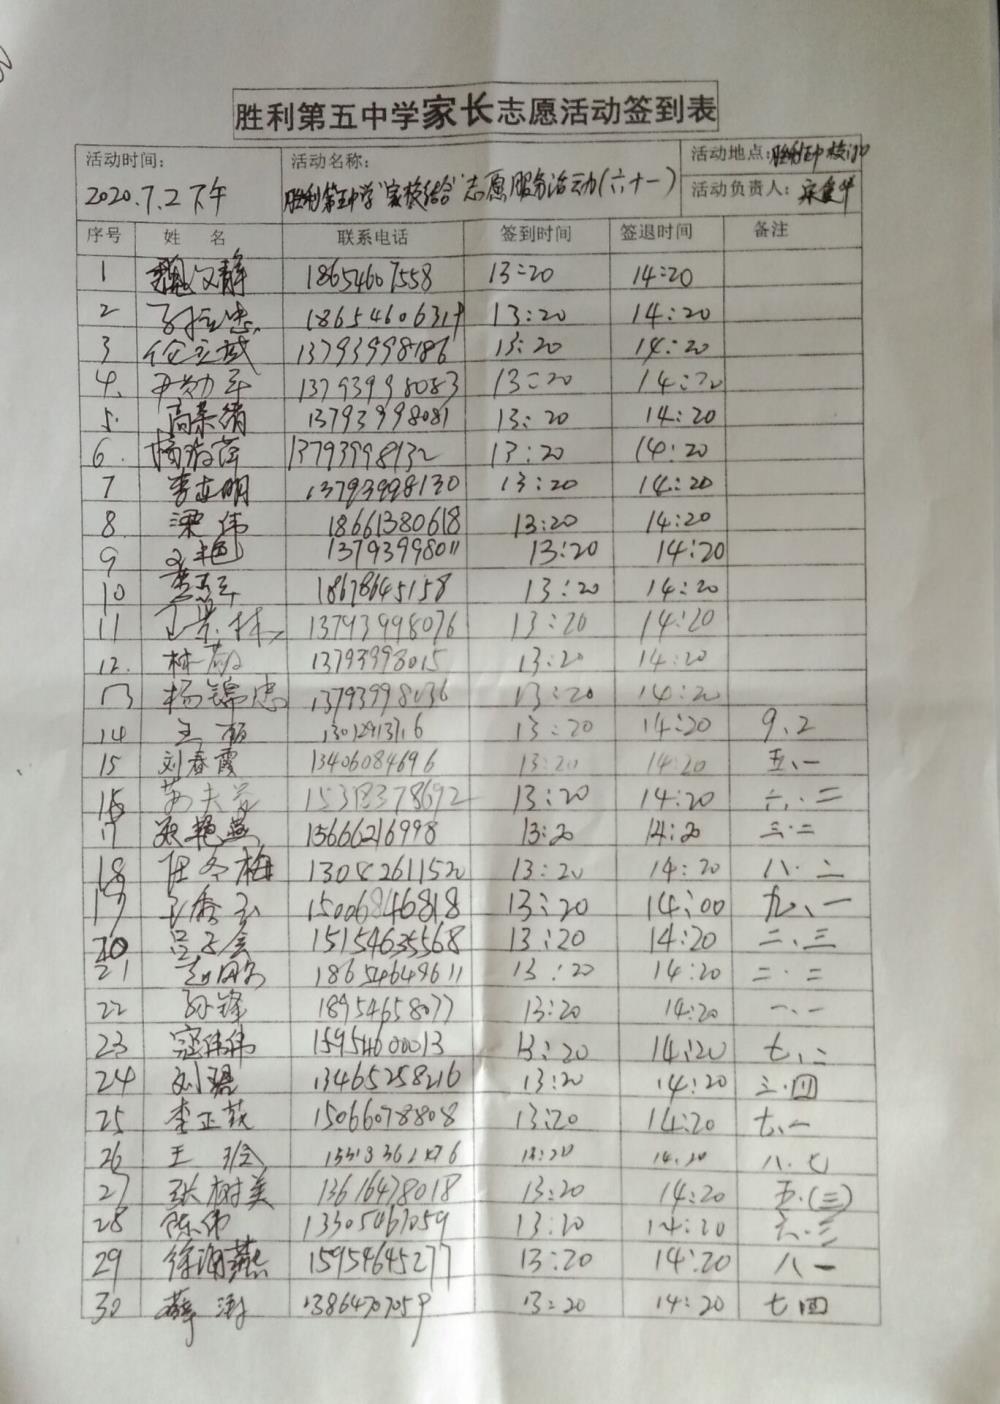 胜利第五中学家长志愿活动签到表
活动时间： 活动名称： 活动地点：胜利五中校门口
2020.7.2下午 胜利第五中学"家校结合"志愿服务活动(六十一) 活动负责人：
序号 姓 名 联系电话 签到时间 签退时间 备注
1 魏文静 18654607558 13:20 14:20
2 1865460631 13:20 14:20
3 13793998186 13:20 14:20
4. 尹勃军 13793998083 13:20 14:20
5. 高荣绪 13793998081 13:20 14:20
6. 13793998132 13:20 14:20
7 李立明 13793998130 13:20 14:20
8. 梁伟 18661380618 13:20 14:20
9 王艳 13793998011 13:20 14:20
10 18678645158 13:20 14:20
11 王景林 13793998076 13:20 14:20
12. 林敏 13793998015 13:20 14:20
13 杨锦忠 13793998036 13:20 14:20
14 王丽 13:20 14:20 9、2
15 刘春霞 13406084696 13:20 14:20 五、一
16 15318378692 13:20 14:20 六、二
17 张艳燕 15666216998 13:20 14:20 三.二
18 任冬梅 13:20 14:20 八.二
19 王秀玉 15006846818 13:20 14:00 九、一
20 吕子会 15154635568 13:20 14:20 二、三
21 18654649611 13:20 14:20 二.二
22 孙锋 18954658077 13:20 14:20 一.一
23 寇伟伟 15954600013 13:20 14:20 七、二
24 刘珺 13465258216 13:20 14:20 三.四
25 李正获 15066078808 13:20 14:20 七、一
26 王 14:20 八.七
27 张树美 13616478018 13:20 14:20 五.(三)
28 陈伟 13305467059 13:20 14:20 六.三
29 徐海燕 15954645277 13:20 14:20 八一
30 薛谢 13864707059 13:20 14:20 七四